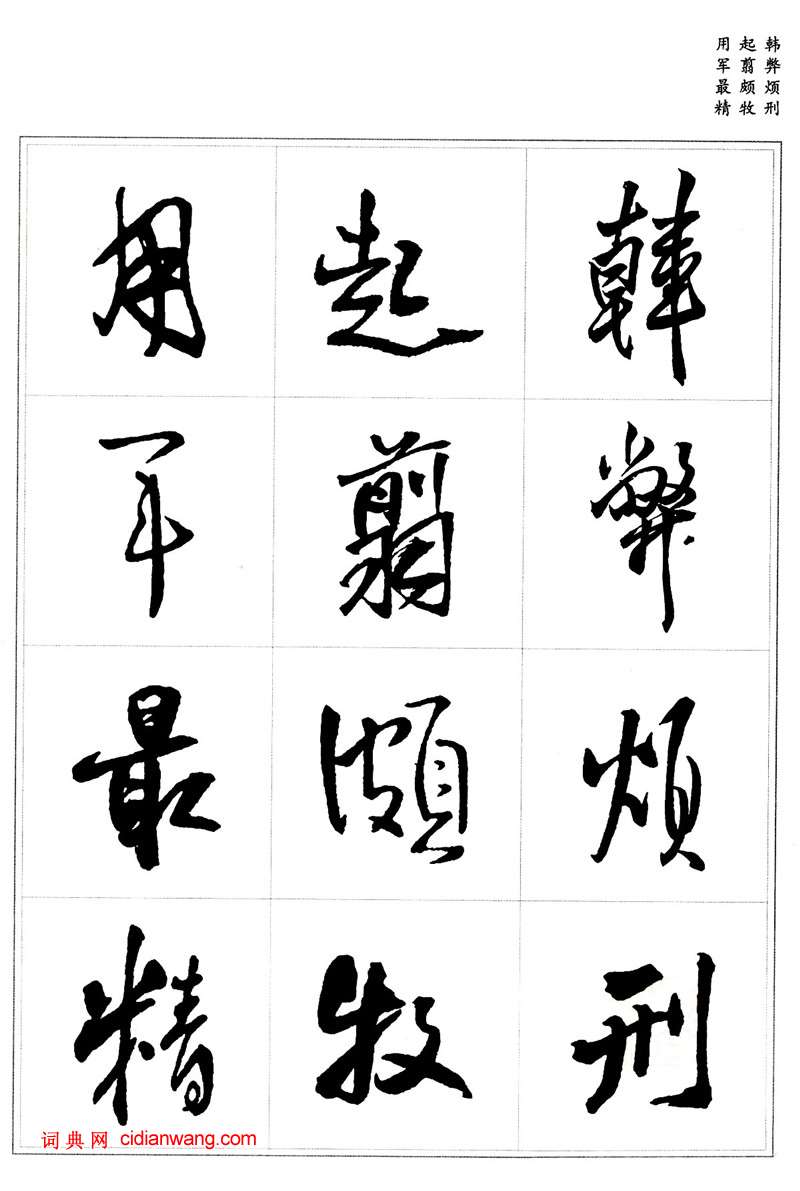 韩弊烦刑
起翦颇牧
用军最精
韓弊煩刑
起翦頗牧
用軍最精
词典网 cidianwang.com